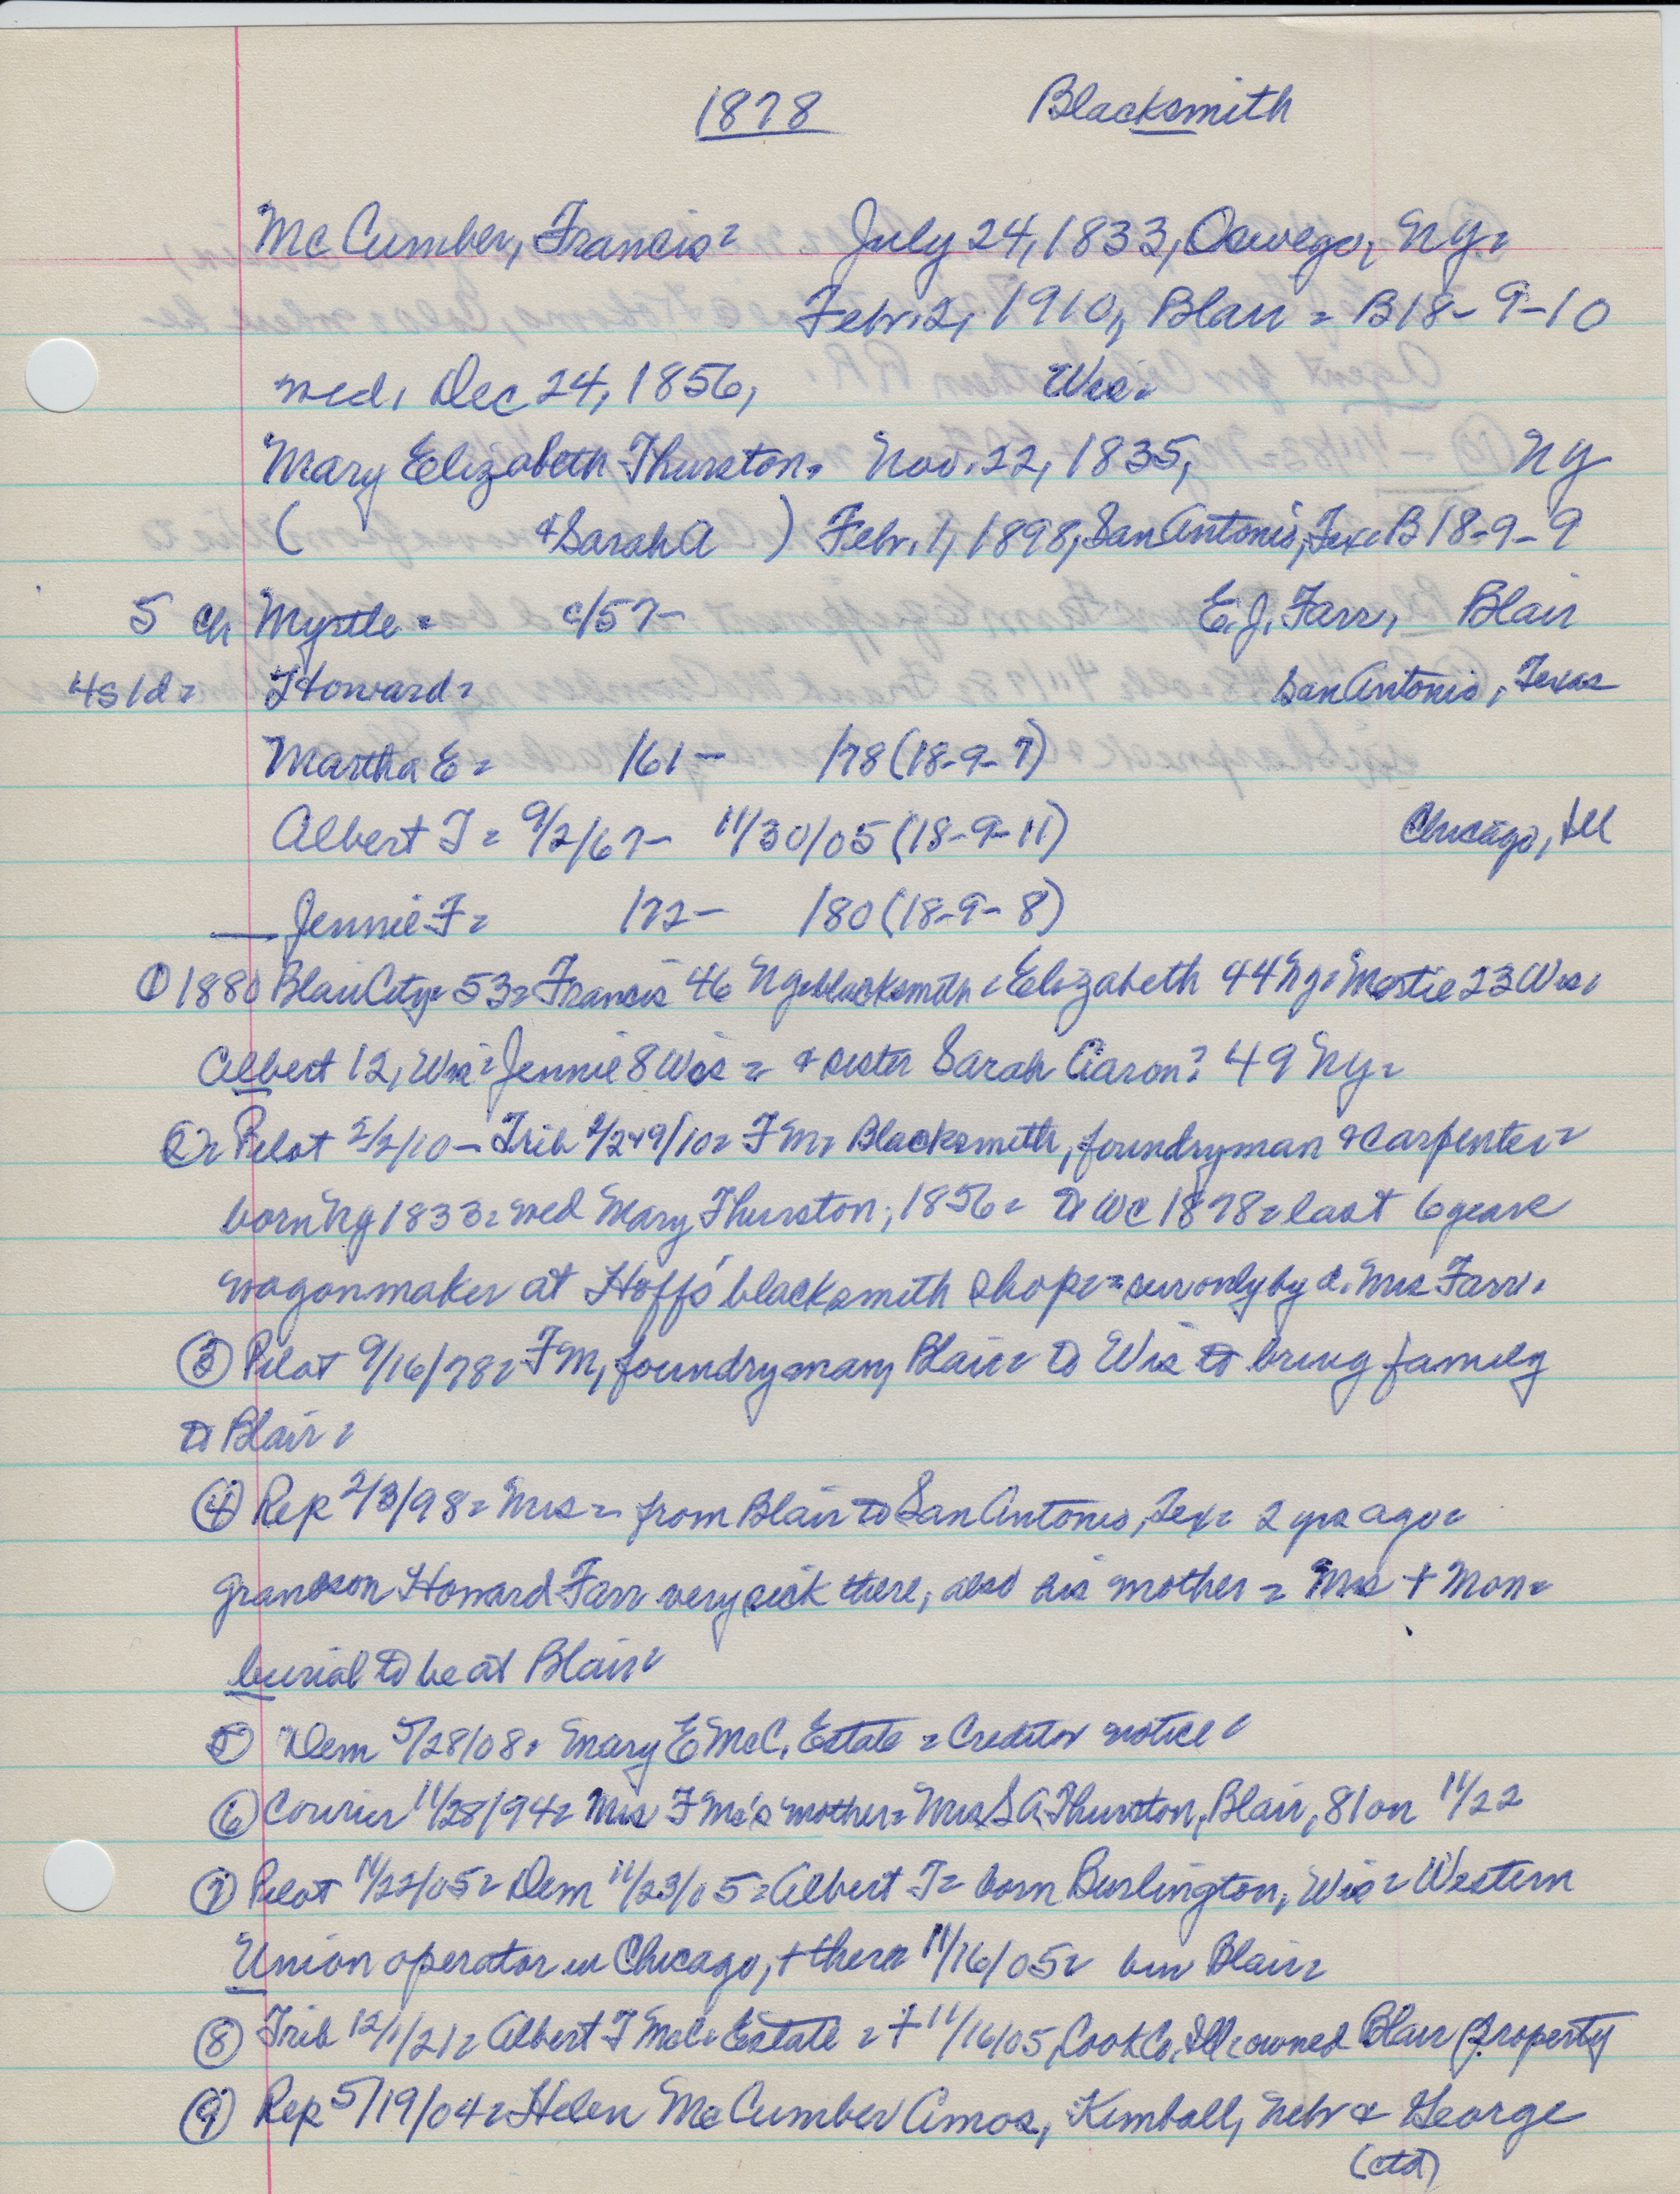 1878 Blacksmith
McCumber, Francis = July 24, 1833, Oswego, Ny =
Febr. 2, 1910, Blair = B18-9-10
wed, Dec 24, 1856, Wis =
Mary Elizabeth Thurston = Nov. 22, 1835, Ny
( & Sarah A ) Febr. 1, 1898, San Antonio, Tex = B18-9-9
5 ch Myrtle = c/57- E. J. Farr, Blair
4s 1d = Howard = San Antonio, Texas
Martha E = /61- /78 (18-9-7)
Albert T = 9/2/67- 11/30/05 (18-9-11) Chicago, Ill
Jennie F = /72- /80 (18-9-8)
① 1880 Blair City = 53 = Francis 46 Ny = blacksmith = Elizabeth 44 Ny = Mertie 23 Wis,
Albert 12, Wis = Jennie 8 Wis = & sister Sarah Aaron? 49 Ny =
② Pilot 2/2/10 - Trib 2/2+9/10 = F M, Blacksmith, foundryman & carpenter =
born Ny 1833 = wed Mary Thurston, 1856 = to WC 1878 = last 6 years
wagonmaker at Hoff's blacksmith shop = surv only by d. Mrs Farr.
③ Pilot 9/16/78 = F M, foundryman, Blair = to Wis to bring family
to Blair =
④ Rep 2/3/98 = Mrs = from Blair to San Antonio, Tex = 2 yrs ago =
grandson Howard Farr very sick there, also his mother = Mrs + Mon =
burial to be at Blair =
5 Dem 5/28/08 = Mary E McC, Estate = Creditor notice =
⑥ Courier 11/28/94 = Mrs F Mc's mother = Mrs S A Thurston, Blair, 81 on 11/22
⑦ Pilot 11/22/05 = Dem 11/23/05 = Albert T = born Burlington, Wis = Western
Union operator in Chicago, + there 11/16/05 = bur Blair =
⑧ Trib 12/1/21 = Albert T McC = Estate = + 11/16/05, Cook Co, Ill = owned Blair property
⑨ Rep 5/19/04 = Helen McCumber Amos, Kimball, Nebr & George
(ctd)